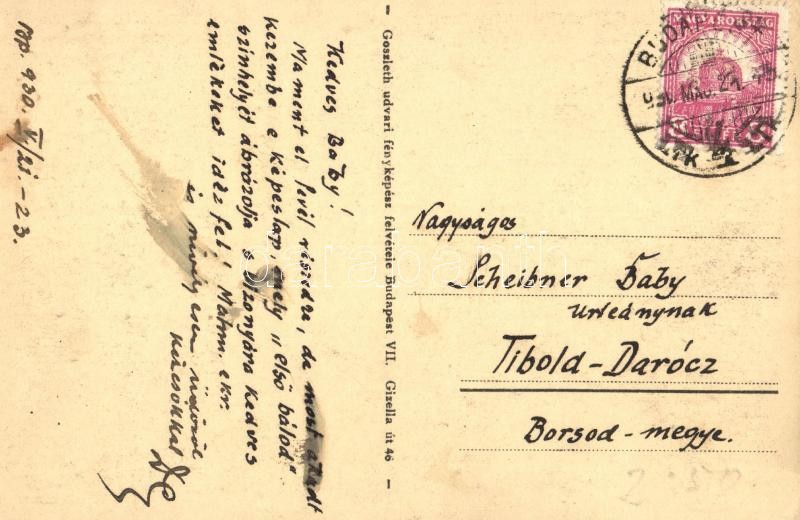 Bp. 930. V/23. – 23.
Kedves Baby!
Ma ment el levél részedre, de most akadt
kezembe e képeslap, mely „első bálod"
szinhelyét ábrázolja s bizonyára kedves
emlékeket idéz fel! Mahm. ekr.
is mély üdvözl
kézcsókkal
— Goszleth udvari fényképész felvétele Budapest VII. Gizella út 46 —
MAGYARORSZÁG
BUDAPEST
930 MÁJ. 24.
Nagyságos
Scheibner Baby
urleánynak
Tibold-Darócz
Borsod-megye.
2.50
darabanth